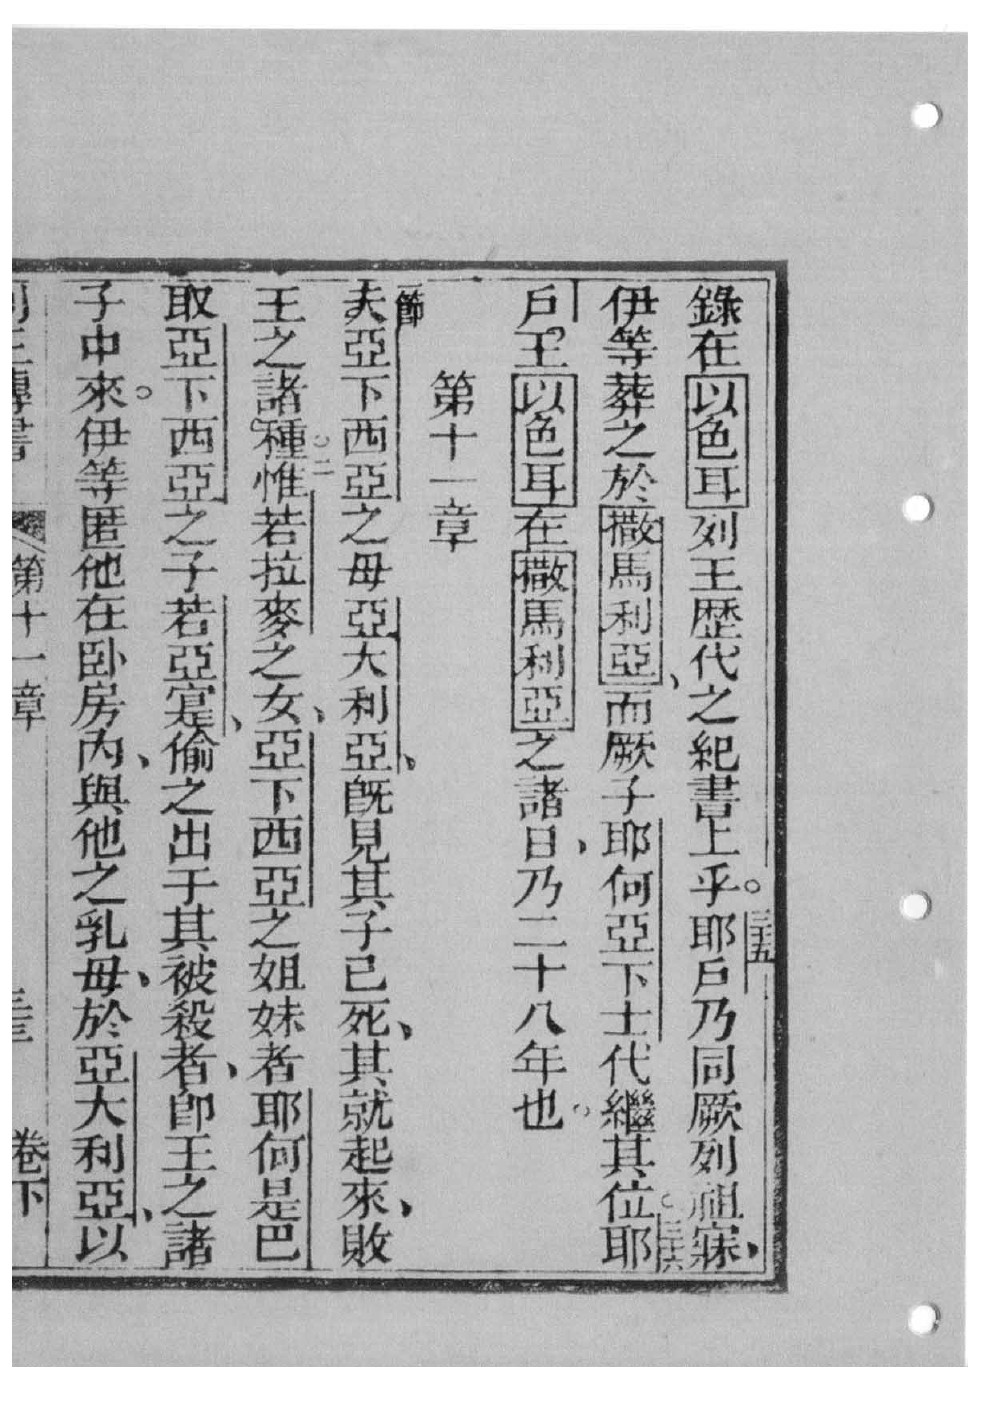 錄在以色耳列王歷代之紀書上乎。三十五耶戶乃同厥列祖寐、
伊等葬之於撒馬利亞、而厥子耶何亞下士代繼其位。三十六耶
戶王以色耳在撒馬利亞之諸日、乃二十八年也。
第十一章
一節夫亞下西亞之母亞大利亞、既見其子已死、其就起來、敗
王之諸種。二惟若拉麥之女、亞下西亞之姐妹者耶何是巴
取亞下西亞之子若亞寔、偷之出于其被殺者、卽王之諸
子中來。伊等匿他在卧房內、與他之乳母、於亞大利亞、以
列王傳書 第十一章 卷下